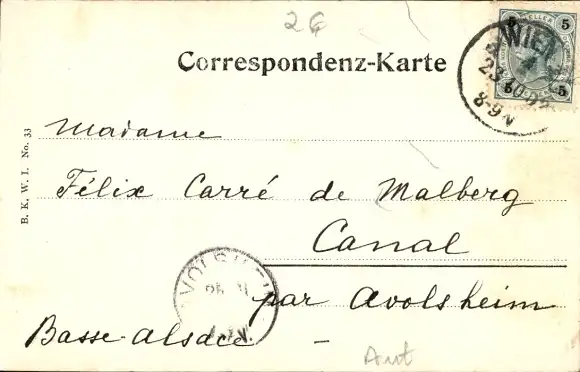 2
Correspondenz-Karte
5 5
WIEN
5 5
8-9N
B. K. W. I. No. 33
Madame
Félix Carré de Malberg
Canal
par Avolsheim
Basse-Alsace –
Aut